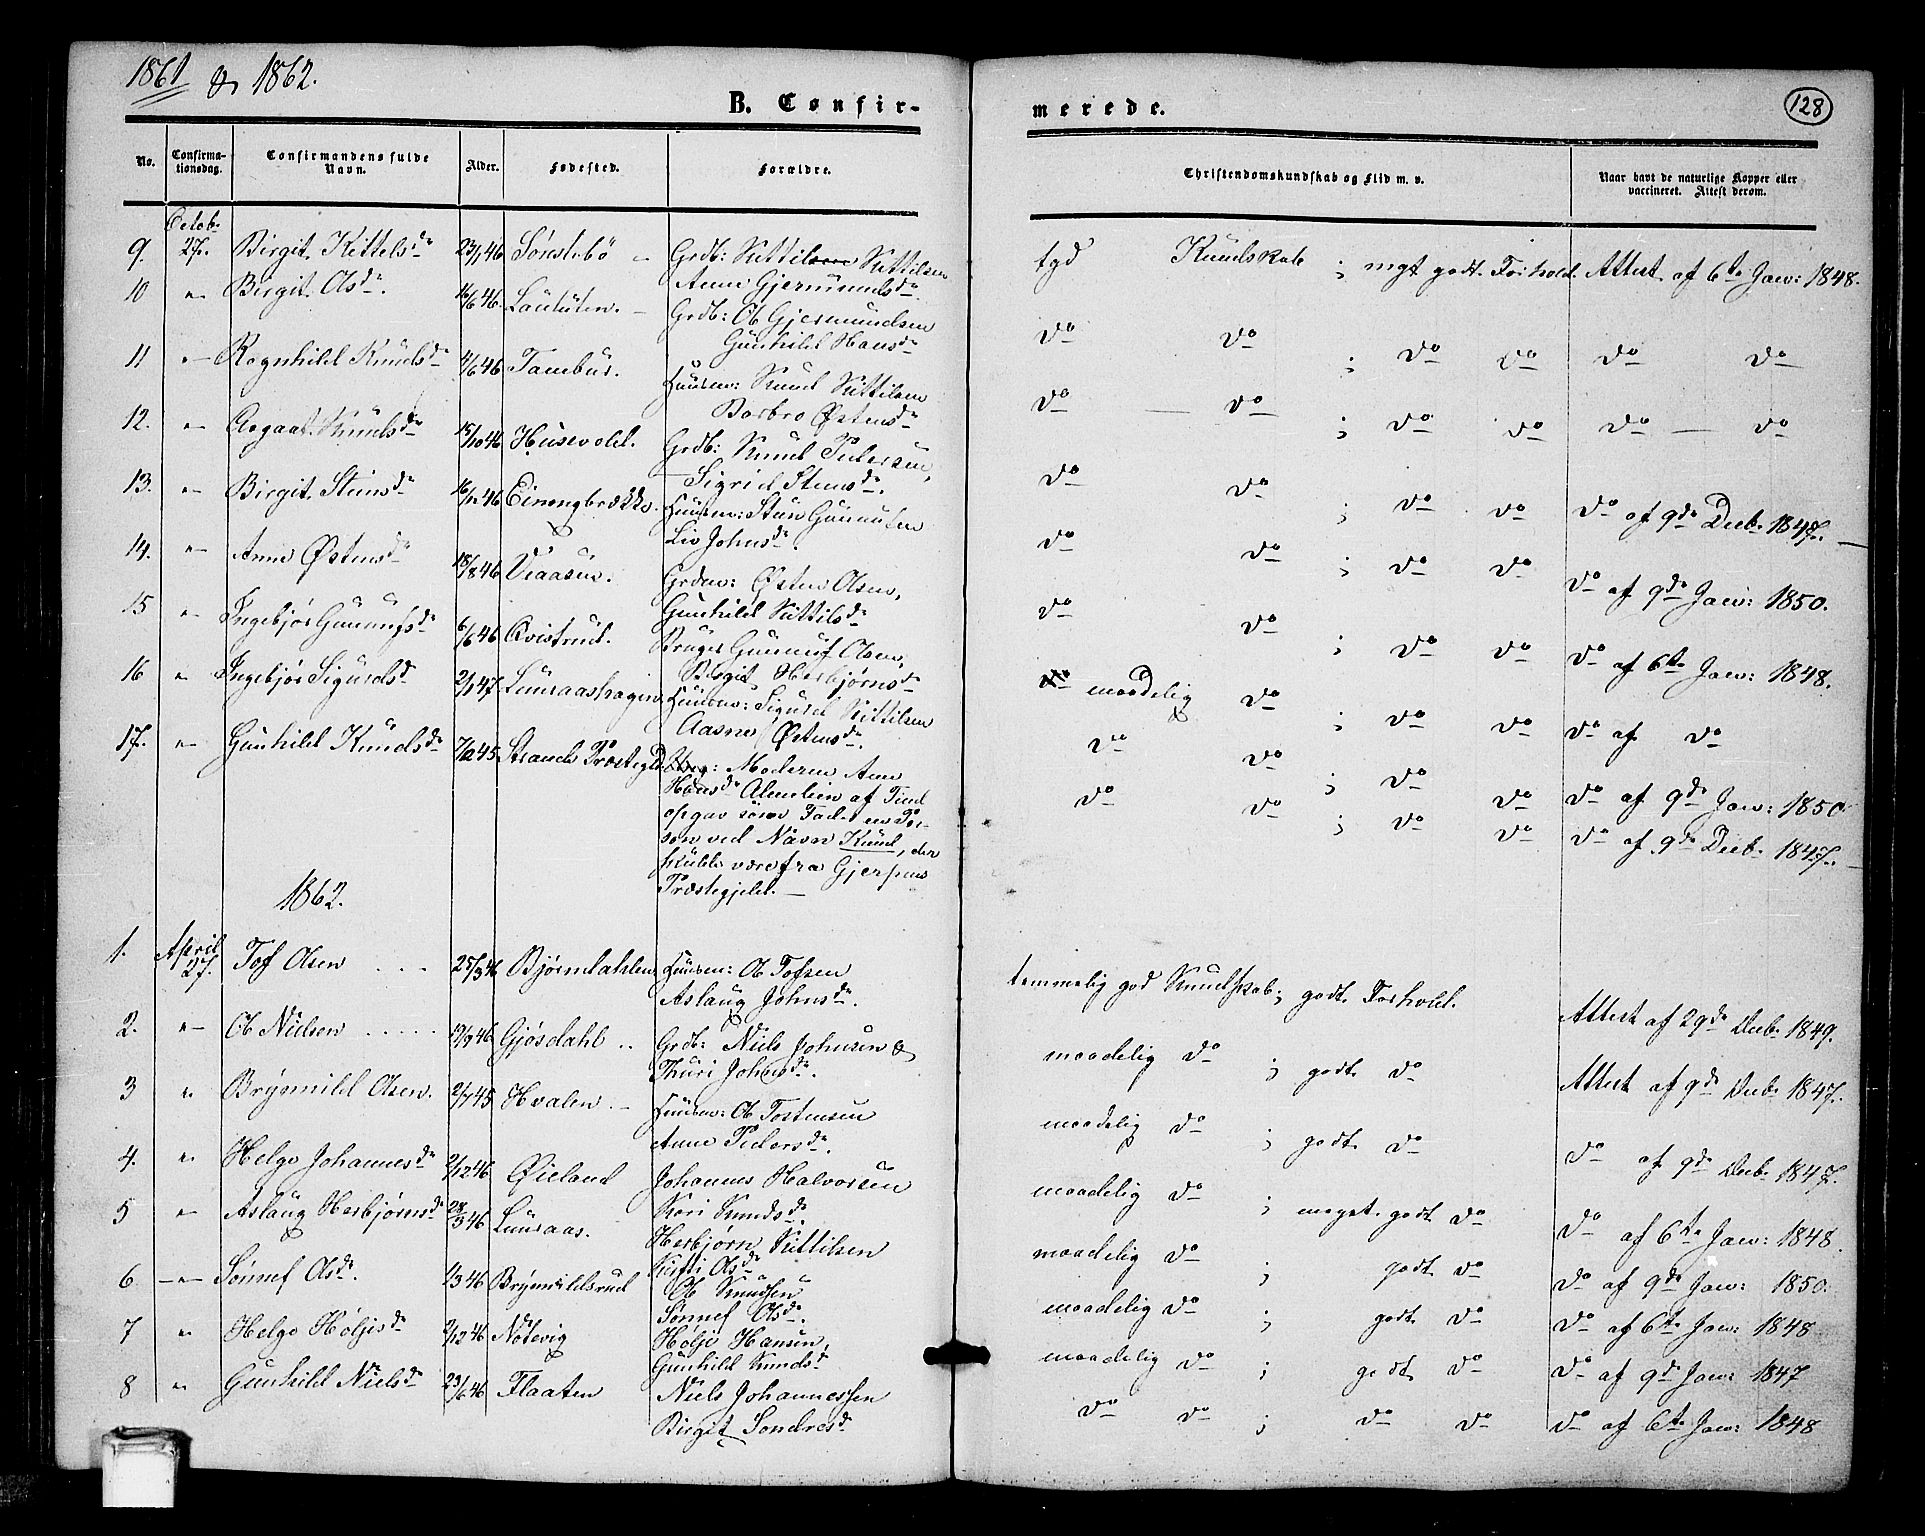 1861 & 1862.
B. Confir-
merede.
128
No.
Confirma-
tionsdag.
Confirmandens fulde
Navn.
Alder.
Fødested.
Forældre.
Christendomskundskab og Flid m. v.
Naar havt de naturlige Kopper eller
vaccineret. Attest derom.
9. Octob. 27. Birgit Kittelsdr 23/1 46 Sønstebö Grdb: Kittil Kittilsen
Anne Gjermundsdr
tgd Kundskab ; mgt godt Forhold. Attest af 6te Jan: 1848.
10 " Birgit Olsdr. 16/6 46. Grdb: Ole Gjermundsen
Gunhild Hansdr
do do ; do do do do
11 " Rognhild Knudsdr 46 Tambur. Huusm: Knud Kittilsen
Barbro Østensdr
do do ; do do do do
12. " Aagaat Knudsdr 15/10 46 Husevold. Grdb: Knud Pedersen,
Sigrid Stensdr.
do do ; do do do af 9de Decb. 1847.
13. " Birgit Steinsdr 16/12 46 Einongbrække. Huusm: Stein Gunnufsen
Liv Johnsdr.
do do ; do do do af 9de Jan: 1850.
14. " Anne Østensdr 18/8 46 Vaasen. Grdm: Østen Olsen,
Gunhild Kittilsdr
do do ; do do do af 6te Jan: 1848.
15 " Ingebjør Gunnufsdr 6/6 46 Qvistrud. Bruger Gunnuf Olsen,
Birgit Herbjørnsdr
maadelig do ; do do do af do
16 " Ingebjør Sigurdsdr 2/1 47. Luuraashagen. Huusm: Sigurd Kittilsen
Aasne Østensdr.
do do ; do do do af 9de Jan: 1850
17. " Gunhild Knudsdr 45 Strand Præstegd. Moderen Anne
Hansdr Alnelien af Tind
opgav som Fader en Per-
son ved Navn Knud, der
skulde være fra Gjerpens
Præstegjeld.
do do ; do do do af 9de Decb. 1847.
1862.
1. April 27. Tof Olsen 25/3 46 Bjørndahlen Huusm: Ole Tofsen
Aslaug Johnsdr.
temmelig god Kundskab ; godt Forhold. Attest af 29de Decb. 1849.
2. " Ole Nielsen 19/9 46 Gjøsdahl Grdb: Niels Johnsen &
Thuri Johnsdr.
maadelig do ; godt do Attest af 9de Decb. 1847.
3 " Brynild Olsen. 2/7 45 Hvalen Huusm: Ole Tostensen
Anne Pedersdr.
maadelig do ; godt do do af 9de Decb. 1847.
4. " Helge Johannesdr 2/12 46 Øieland Johannes Halvorsen
Kari Knudsdr.
maadelig do ; meget godt do do af 6te Jan: 1848.
5 " Aslaug Herbjørnsdr 28/3 46 Luuraas. Herbjorn Kittilsen
Kirsti Olsdr
maadelig do ; godt do do af 9de Jan: 1850.
6 " Sønnef Olsdr. 1/3 46 Brynildsrud Ole Knudsen
Sønnef Olsdr.
maadelig do ; godt do do af 6te Jan: 1848
7 " Helge Höljesdr 2/12 46 Notevig Holje Hansen,
Gunhild Knudsdr
maadelig do ; godt do do af 9de Jan: 1847
8 " Gunhild Nielsdr 23/6 46 Flaaten Niels Johannessen
Birgit Sondresdr
do do ; do do do af 6te Jan: 1848